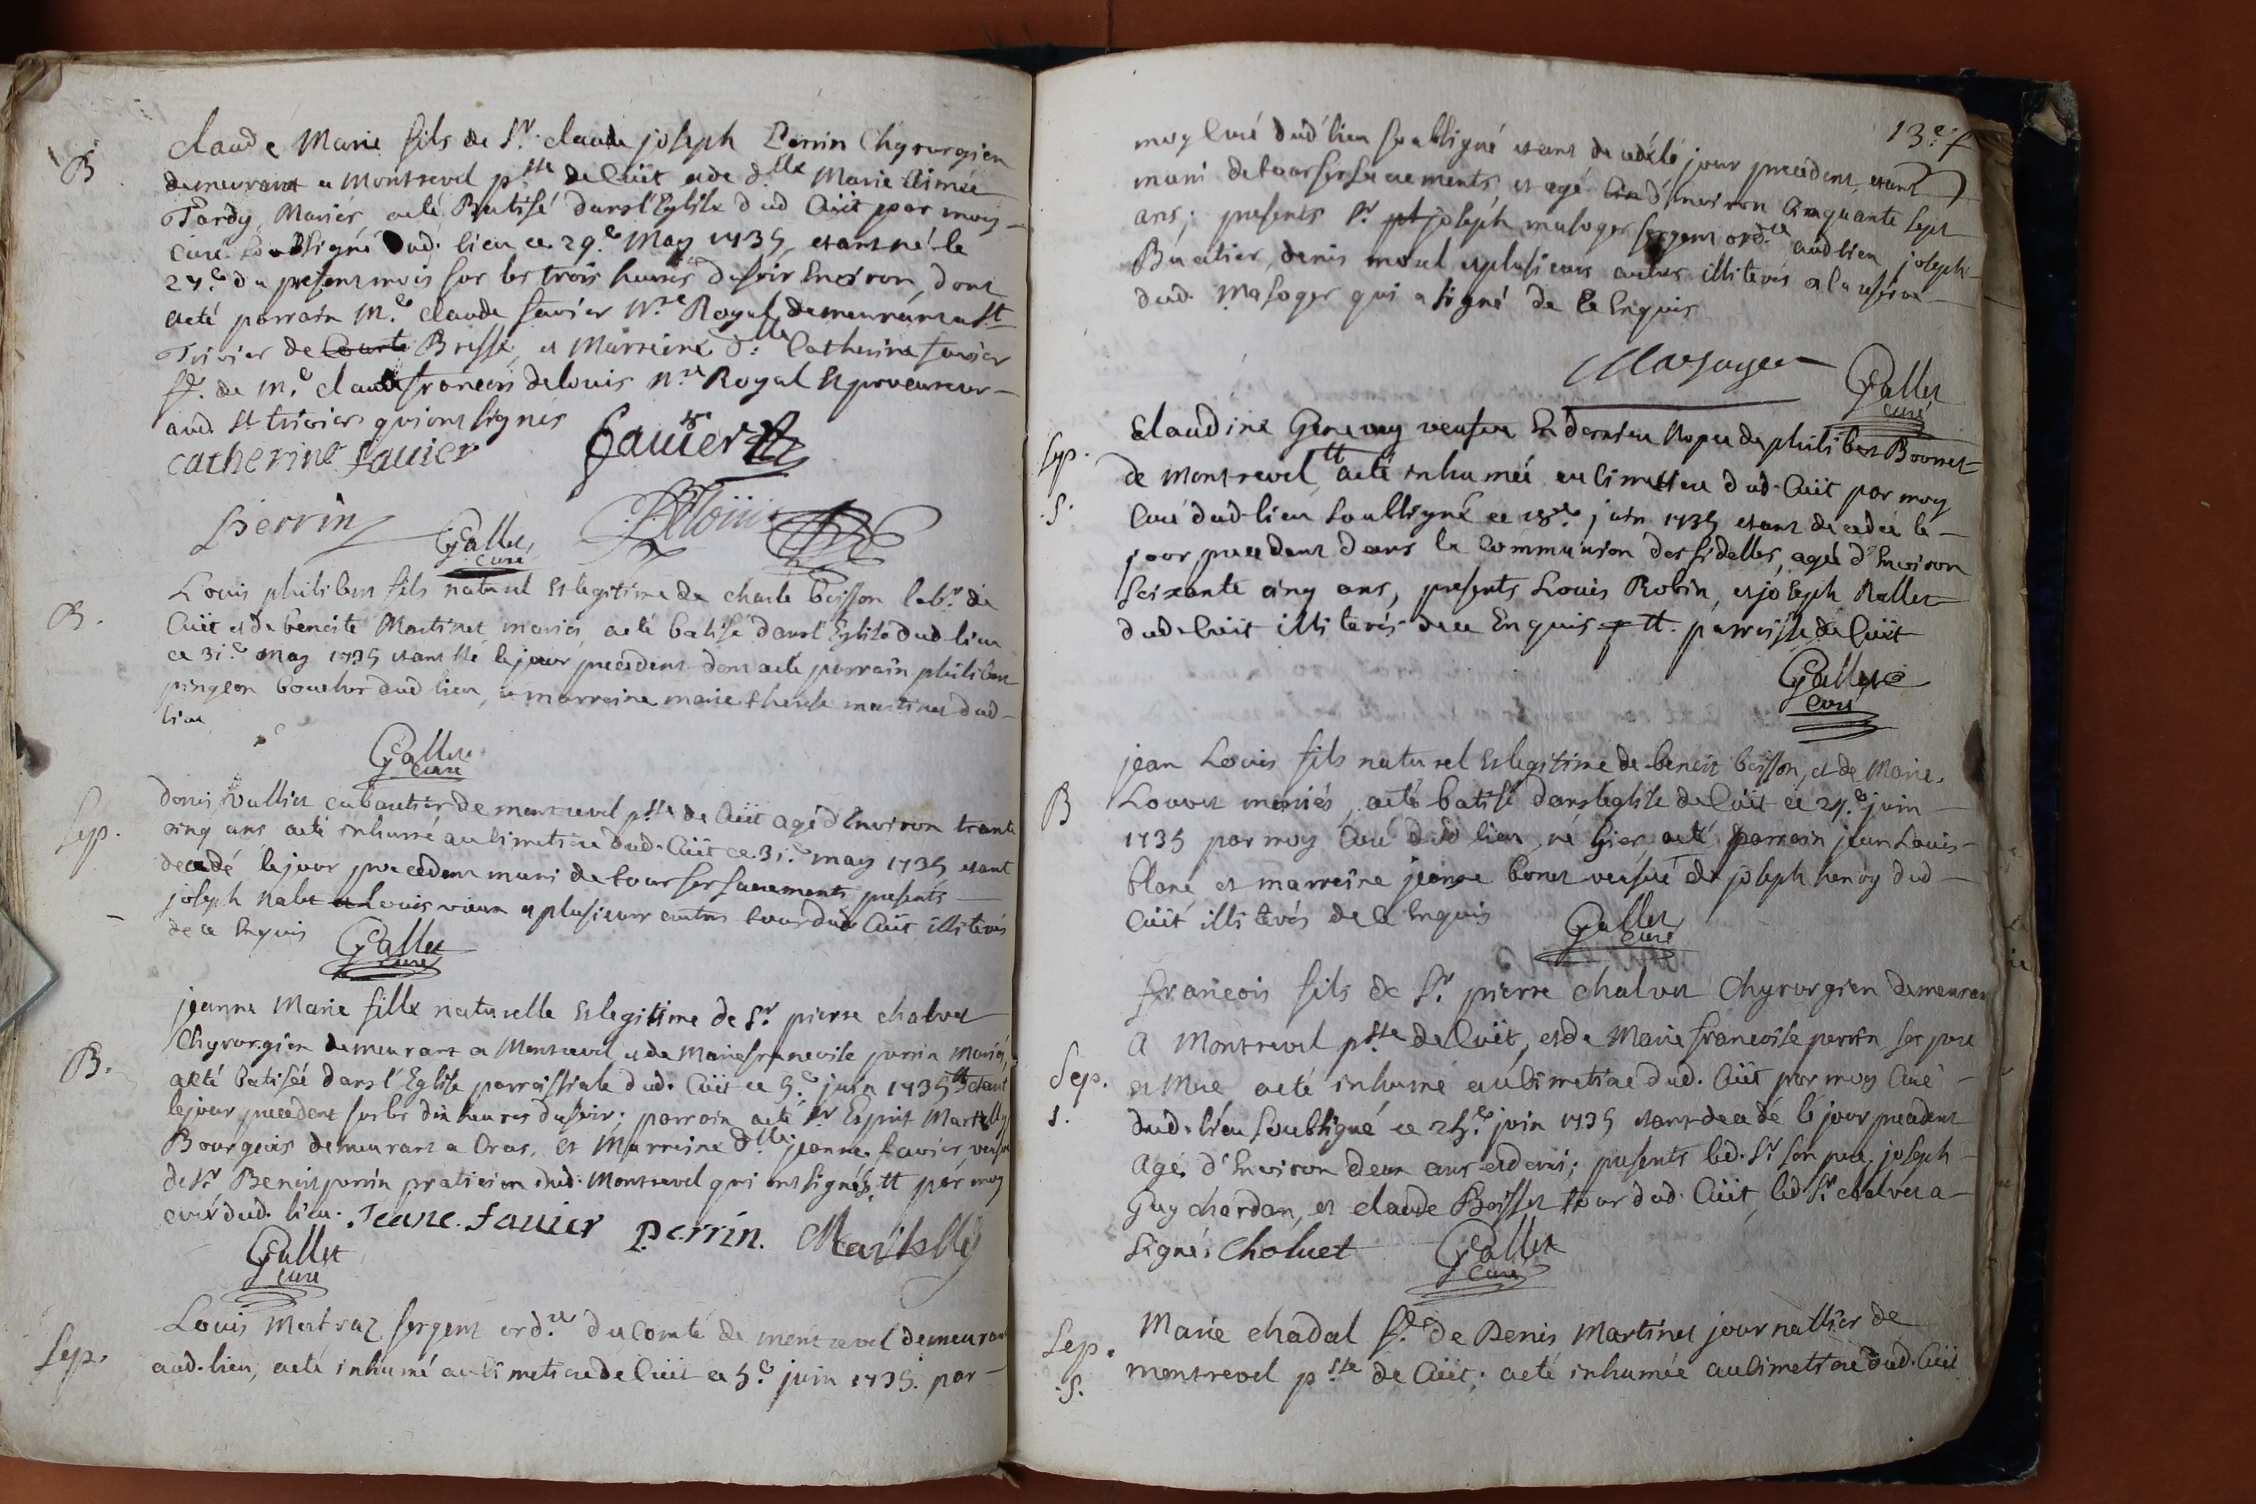 B
claude Marie fils de Sr. claude joseph Perrin Chyrurgien
demeurant a Montrevel psse de Cuit et de dlle Marie Aimée
Tardy, Mariés, a eté Batisé dans l'Eglise dud Cuit par moy
Curé Soubsigné dud. lieu ce 29.e May 1735, etant né le
27.e du present mois sur les trois heures du soir Environ, dont
a eté parrain M.e claude favier N.re Royal demeurant a St
Trivier de Courte Bresse, et Marreine d.lle Catherine favier
fe. de M.e claude françois delouis N.re Royal Et procureur
aud. St trivier qui ont signés
catherine favier favier
Perrin Gallet curé Delouis
B.
Louis philibert fils naturel Et legitime de charle boisson labr. de
Cuit et de benoite Martinet, mariés, a eté batisé dans l'Eglise dud lieu
ce 31.e may 1735 etant né le jour precedent dont a eté parrain philibert
pingeon boucher dud lieu, et marraine marie therese martinet dud
lieu
Gallet
curé
Sep.
denis Vulliet cabautier de montrevel psse de Cuit agé d'Environ trante
cinq ans a eté inhumé au Cimetiere dud. Cuit ce 31.e may 1735 etant
decedé le jour precedent muni de tous ses sacrements, presents
joseph Ralet et Louis vieux et plusieurs autres tous dud Cuit illiterés
de ce Enquis Gallet
curé
B.
jeanne Marie fille naturelle Et legitime de Sr. pierre chalvet
Chyrurgien demeurant a Montrevel et de Marie francoise perrin Mariés,
a eté batisée dans l'Eglise parroissiale dud. Cuit ce 5.e juin 1735 tt etant
le jour precedent sur les dix heures du soir; parrain a eté Sr. Esprit Martelly
Bourgeois demeurant a Oras, et Marreine dlle jeanne favier, veufve
de Sr. Benoit perrin praticien dud. Montrevel qui ont signés tt par moy
curé dud. lieu. Jeane favier perrin. Martelly
Gallet
curé
Sep.
Louis Matraz sergent ord.re du Comté de montrevel demeurant
aud. lieu, a eté inhumé au Cimetiere de Cuit ce 5.e juin 1735. par
13.e f
moy Curé dud lieu soubsigné etant decedé le jour precedent, etant
muni de tous ses sacrements et agé d'Environ Cinquante sept
ans; presents Sr. joseph masoyer sergent ord.re aud lieu joseph
Buatier, denis morel et plusieurs autres illiterés a la reserve
dud. Masoyer qui a signé de ce Enquis
Masoyer Gallet
curé
Sep.
.S.
Claudine Genevay veufve En derniere Nopce de philibert Bonnet
de Montrevel tt a eté inhumée au Cimetiere dud. Cuit par moy
Curé dud lieu Soubsigné ce 18.e juin 1735 etant decedée le
jour precedent dans la Communion des fidelles, agée d'Environ
Soixante cinq ans, presents Louis Robin, et joseph Rallet
dud. Cuit illiterés de ce Enquis tt. parroisse de Cuit
Gallet
curé
B
jean Louis fils naturel Et legitime de benoit boisson, et de Marie
Louvet mariés, a eté batisé dans l'eglise de Cuit ce 24.e juin
1735 par moy Curé dud lieu, né hier a eté parrain jean Louis
blanc et marreine jeanne bonet veufve de joseph henoy dud
Cuit illiterés de ce Enquis Gallet
curé
Sep.
S.
françois fils de Sr. pierre chalvet Chyrurgien demeurant
A Montrevel psse de Cuit, et de Marie francoise perrin ses pere
et Mere a eté inhumé au Cimetiere dud. Cuit par moy Curé
dud. lieu soubsigné ce 25.e juin 1735 etant decedé le jour precedent
Agé d'Environ deux ans et demi; presents led. Sr. son pere joseph
Guychardan, et claude Boisset tous dud. Cuit, led Sr. chalvet a
signé; Chaluet Gallet
curé
Sep.
.S.
Marie chadal fe. de Denis Martinet journallier de
montrevel psse de Cuit; a eté inhumée au Cimetiere dud. Cuit